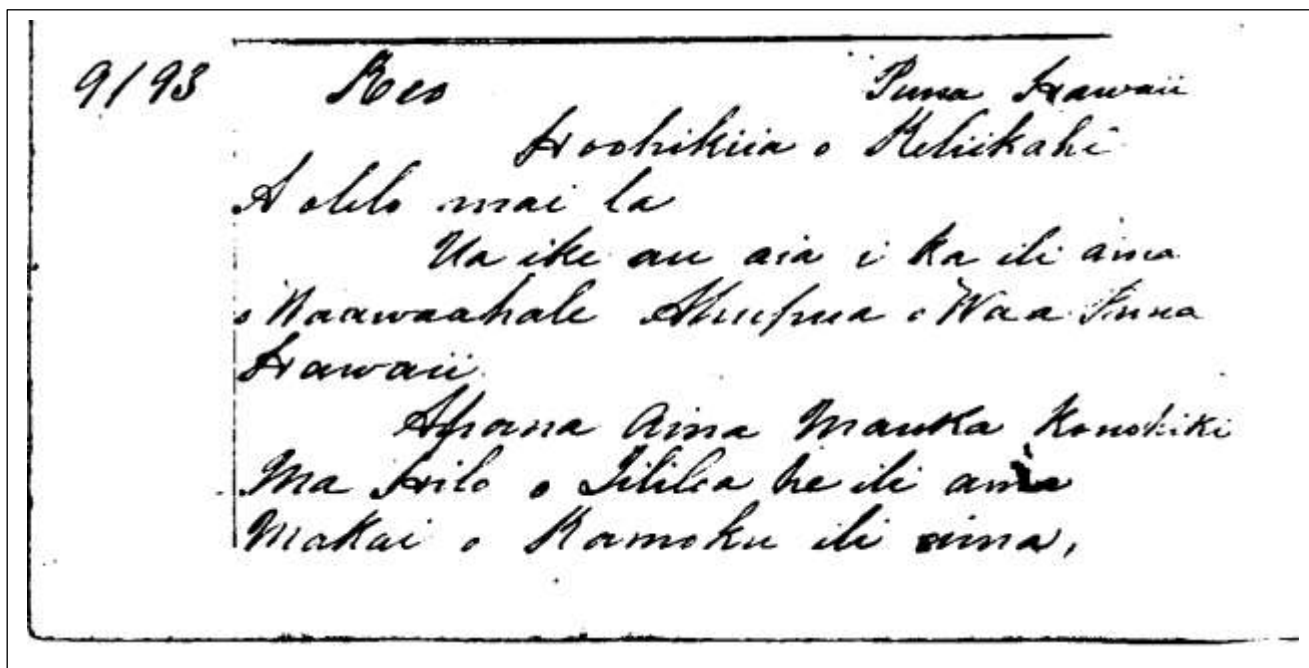 9193 Keo Puna Hawaii
Hoohikiia o Keliikahi
A olelo mai la
Ua ike au aia i ka ili aina
o Naawaahale Ahupua o Waa Puna
Hawaii.
Apana Aina Mauka Konohiki
Ma Hilo o Iililoa he ili aina
Makai o Kamoku ili aina,